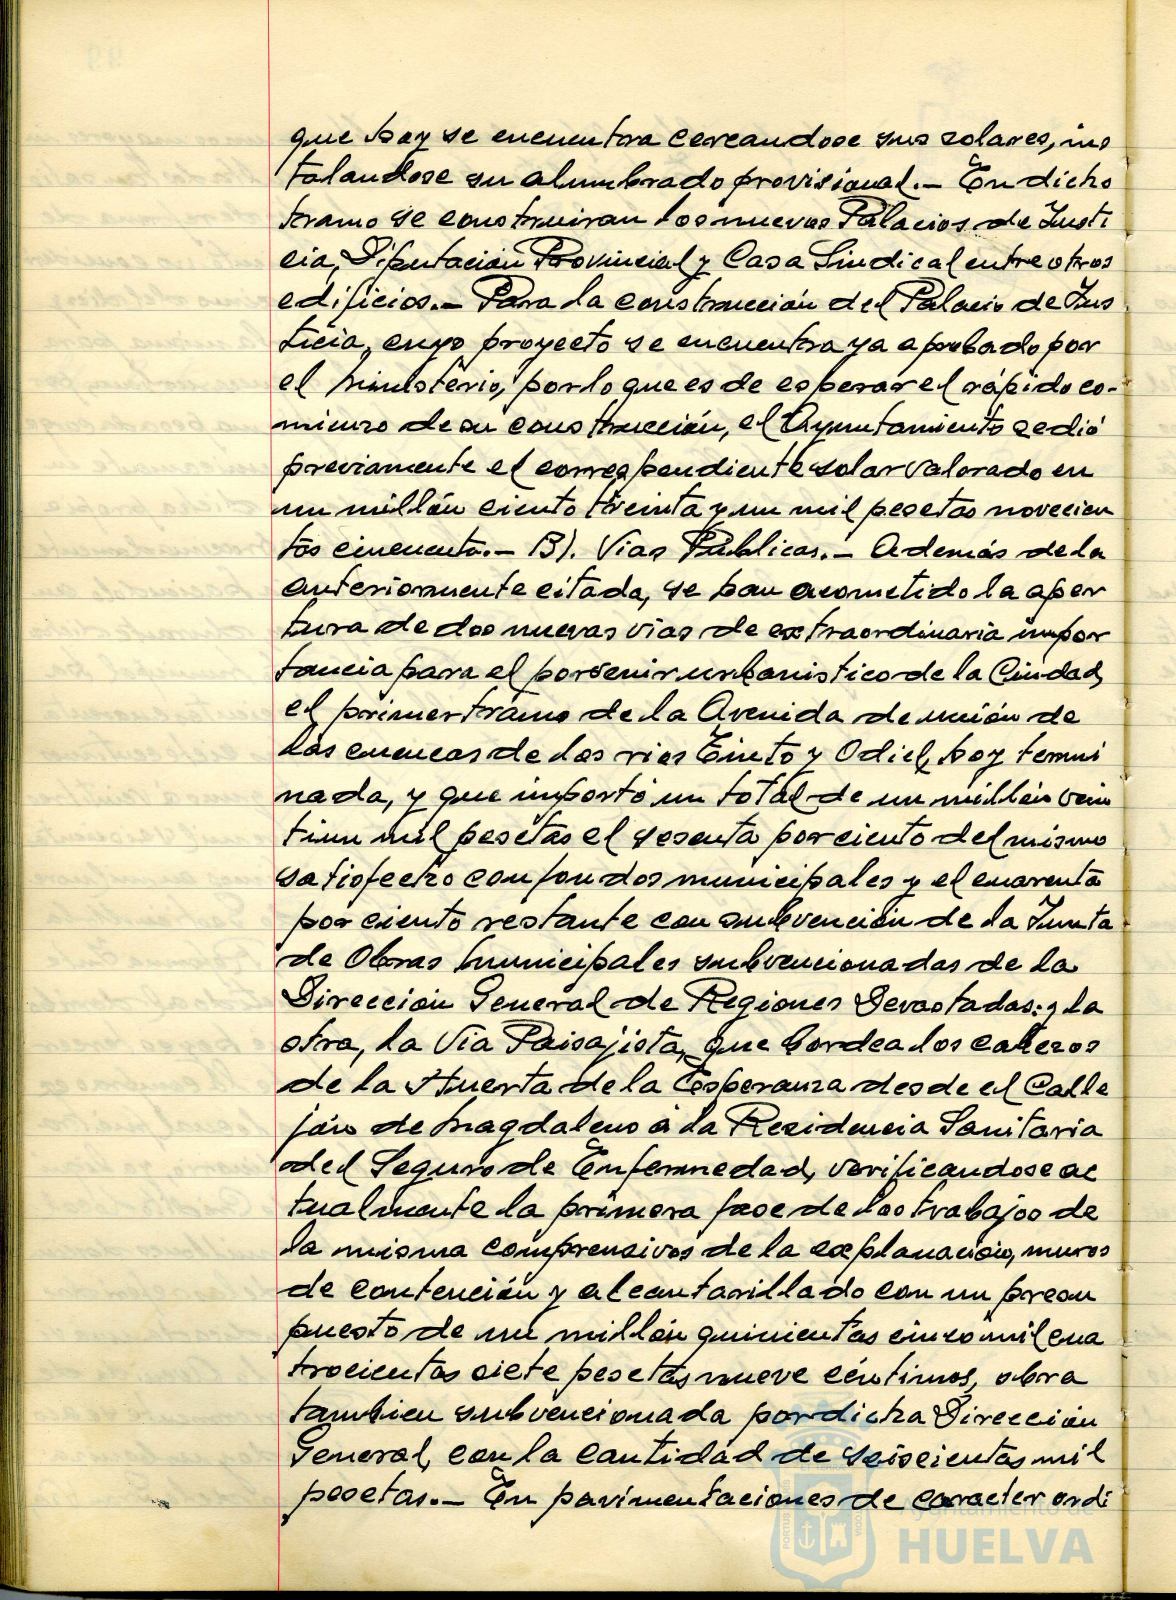 que hoy se encuentra cercandose sus solares, ins
talandose su alumbrado provisional.— En dicho
tramo se construiran los nuevos Palacios de Justi
cia, Diputación Provincial y Casa Sindical entre otros
edificios.— Para la construcción del Palacio de Jus
ticia, cuyo proyecto se encuentra ya aprobado por
el Ministerio, por lo que es de esperar el rápido co-
mienzo de su construcción, el Ayuntamiento cedió
previamente el correspendiente solar valorado en
un millón ciento treinta y un mil pesetas novecien
tas cincuenta.— B). Vias Públicas.— Además de la
anteriormente citada, se han acometido la aper
tura de dos nuevas vias de extraordinaria impor
tancia para el porvenir urbanistico de la Ciudad,
el primer tramo de la Avenida de unión de
las cuencas de los rios Tinto y Odiel, hoy termi
nada, y que importó un total de un millón vein
tiun mil pesetas el sesenta por ciento del mismo
satisfecho con fondos municipales y el cuarenta
por ciento restante con subvención de la Junta
de Obras Municipales subvencionadas de la
Dirección General de Regiones Devastadas: y la
otra, la Via Paisajista, que bordea los cabezos
de la Huerta de la Esperanza desde el Calle
jón de Magdaleno a la Residencia Sanitaria
del Seguro de Enfermedad, verificandose ac
tualmente la primera fase de los trabajos de
la misma comprensivos de la explanación, muros
de contención y alcantarillado con un presu
puesto de un millón quinientas cinco mil cua
trocientas siete pesetas nueve céntimos, obra
tambien subvencionada por dicha Dirección
General, con la cantidad de seiscientas mil
pesetas.— En pavimentaciones de caracter ordi
Ayuntamiento de
HUELVA